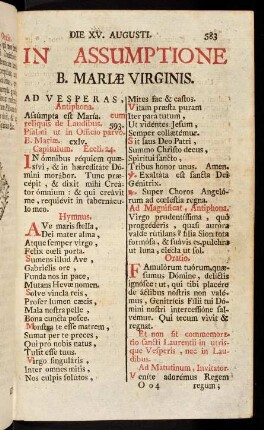 DIE XV. AUGUSTI. 583
IN ASSUMPTIONE
B. MARIÆ VIRGINIS.
AD VESPERAS,
Antiphona.
Assúmpta est María. cum
reliquis de Laudibus. 593.
Psalmi ut in Officio parvo
B. Mariæ. cxlv.
Capitulum. Eccli. 24.
IN ómnibus réquiem quæ-
sívi, & in hæreditáte Dó-
mini morábor. Tunc præ-
cépit, & dixit mihi Creá-
tor ómnium: & qui creávit
me, requiévit in tabernácu-
lo meo.
Hymnus.
AVe maris stella,
Dei mater alma
Atque semper virgo,
Felix cœli porta.
Sumens illud Ave,
Gabriélis ore,
Funda nos in pace,
Mutans Hevæ nomen.
Solve vincla reis,
Profer lumen cæcis,
Mala nostra pelle,
Bona cuncta posce.
Monstra te esse matrem,
Sumat per te preces,
Qui pro nobis natus,
Tulit esse tuus.
Virgo singuláris,
Inter omnes mitis,
Nos culpis solútos,
Mites fac & castos.
Vitam præsta puram
Iter para tutum,
Ut vidéntes Jesum,
Semper collætémur.
Sit laus Deo Patri,
Summo Christo decus,
Spirítui sancto,
Tribus honor unus. Amen.
℣. Exaltáta est sancta Dei
Génitrix.
℟. Super Choros Angeló-
rum ad cœléstia regna.
Ad Magnificat, Antiphona.
Virgo prudentíssima, quò
progréderis, quasi auróra
valde rútilans? fília Sion tota
formósa, & suávis es, pulchra
ut luna, elécta ut sol.
Oratio.
FAmulórum tuórum, quæ-
sumus Dómine, delíctis
ignósce: ut, qui tibi placére
de áctibus nostris non valé-
mus, Genitrícis Fílii tui Dó-
mini nostri intercessióne sal-
vémur. Qui tecum vivit &
regnat.
Et non fit commemora-
tio sancti Laurentii in utris-
que Vesperis, nec in Lau-
dibus.
Ad Matutinum, Invitator.
Veníte adorémus Regem
Oo4 regum;